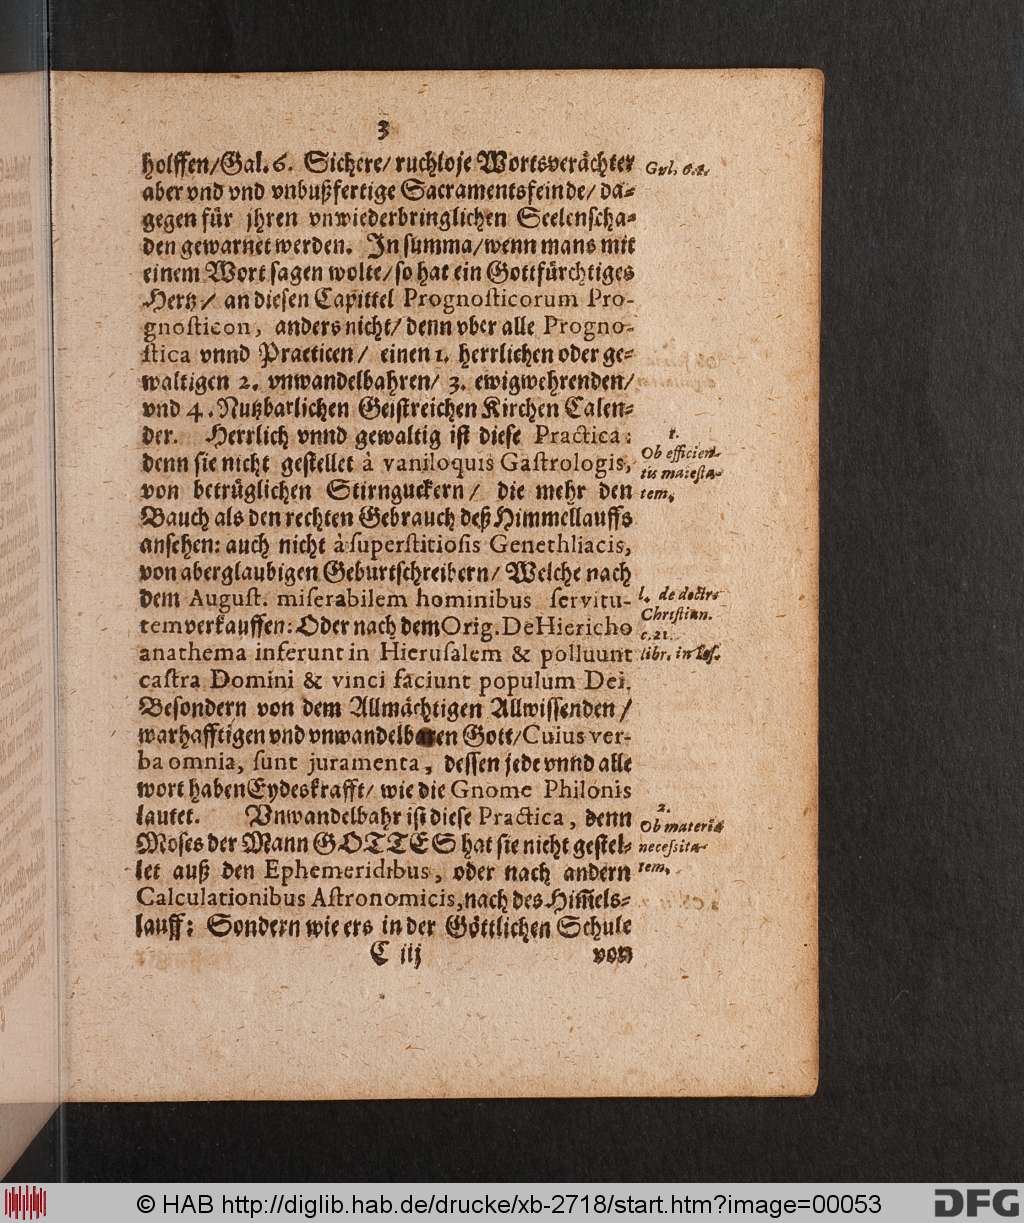 3
holffen/Gal. 6. Sichere/ ruchlose Wortsverächter
Gal. 6.1.
aber vnd vnd vnbußfertige Sacramentsfeinde/ da⸗
gegen für jhren vnwiederbringlichen Seelenscha⸗
den gewarnet werden. In summa/wenn mans mit
einem Wort sagen wolte/ so hat ein Gottfürchtiges
Hertz/ an diesen Capittel Prognoſticorum Pro-
gnoſticon, anders nicht/ denn vber alle Progno-
ſtica vnnd Practicen/ einen 1. herrlichen oder ge⸗
waltigen 2. vnwandelbahren/ 3. ewigwehrenden/
vnd 4. Nutzbarlichen Geistreichen Kirchen Calen⸗
der. Herrlich vnnd gewaltig ist diese Practica:
denn sie nicht gestellet à vaniloquis Gaſtrologis,
von betrüglichen Stirnguckern/ die mehr den
1.
Ob efficien-
tis maieſta-
tem.
Bauch als den rechten Gebrauch deß Himmellauffs
ansehen: auch nicht à ſuperſtitioſis Genethliacis,
von aberglaubigen Geburtschreibern/ Welche nach
dem Auguſt. miſerabilem hominibus ſervitu-
tem verkauffen: Oder nach dem Orig. De Hiericho
anathema inferunt in Hieruſalem & polluunt
l. de doctr.
Chriſtian.
c. 21.
libr. in Ioſ.
caſtra Domini & vinci faciunt populum Dei.
Besondern von dem Allmächtigen Allwissenden/
warhafftigen vnd vnwandelbaren Gott/ Cuius ver-
ba omnia, ſunt juramenta, dessen jede vnnd alle
wort haben Eydeskrafft/ wie die Gnome Philonis
lautet. Vnwandelbahr ist diese Practica, denn
Moses der Mann GOTTES hat sie nicht gestel⸗
let auß den Ephemeridibus, oder nach andern
2.
Ob materiæ
neceſsita-
tem.
Calculationibus Aſtronomicis, nach des Him̃els⸗
lauff: Sondern wie ers in der Göttlichen Schule
C iij
von
© HAB http://diglib.hab.de/drucke/xb-2718/start.htm?image=00053
DFG